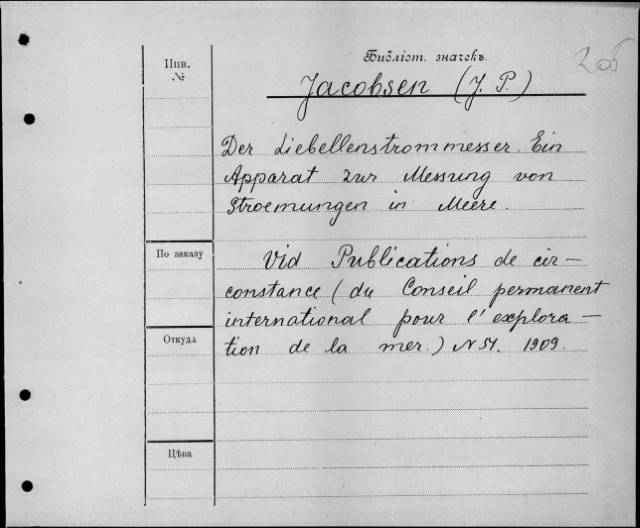 Библіот. значекъ.
Инв.
№
Jacobsen (J. P.)
Der Liebellenstrommesser. Ein
Apparat zur Messung von
Stroemungen in Meere.
По заказу
Vid Publications de cir-
constance (du Conseil permanent
international pour l'explora-
Откуда
tion de la mer.) N 51. 1909.
Цѣна